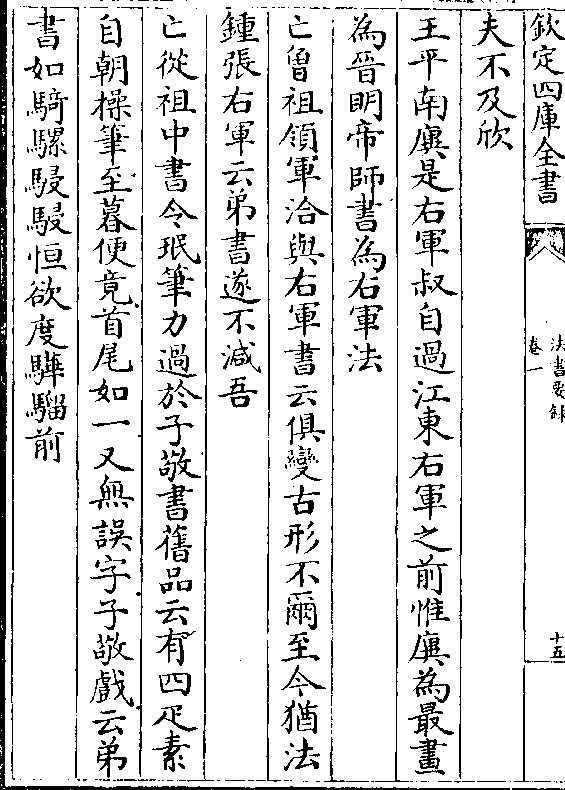 欽定四庫全書
法書要錄
卷一
十五
夫不及欣
王平南廙是右軍叔自過江東右軍之前惟廙為最畫
為晉眀帝師書為右軍法
亡曾祖領軍洽與右軍書云俱變古形不爾至今猶法
鍾張右軍云弟書遂不減吾
亡從祖中書令珉筆力過於子敬書舊品云有四疋素
自朝操筆至暮便竟首尾如一又無誤字子敬戲云弟
書如騎騾駸駸恒欲度驊騮前